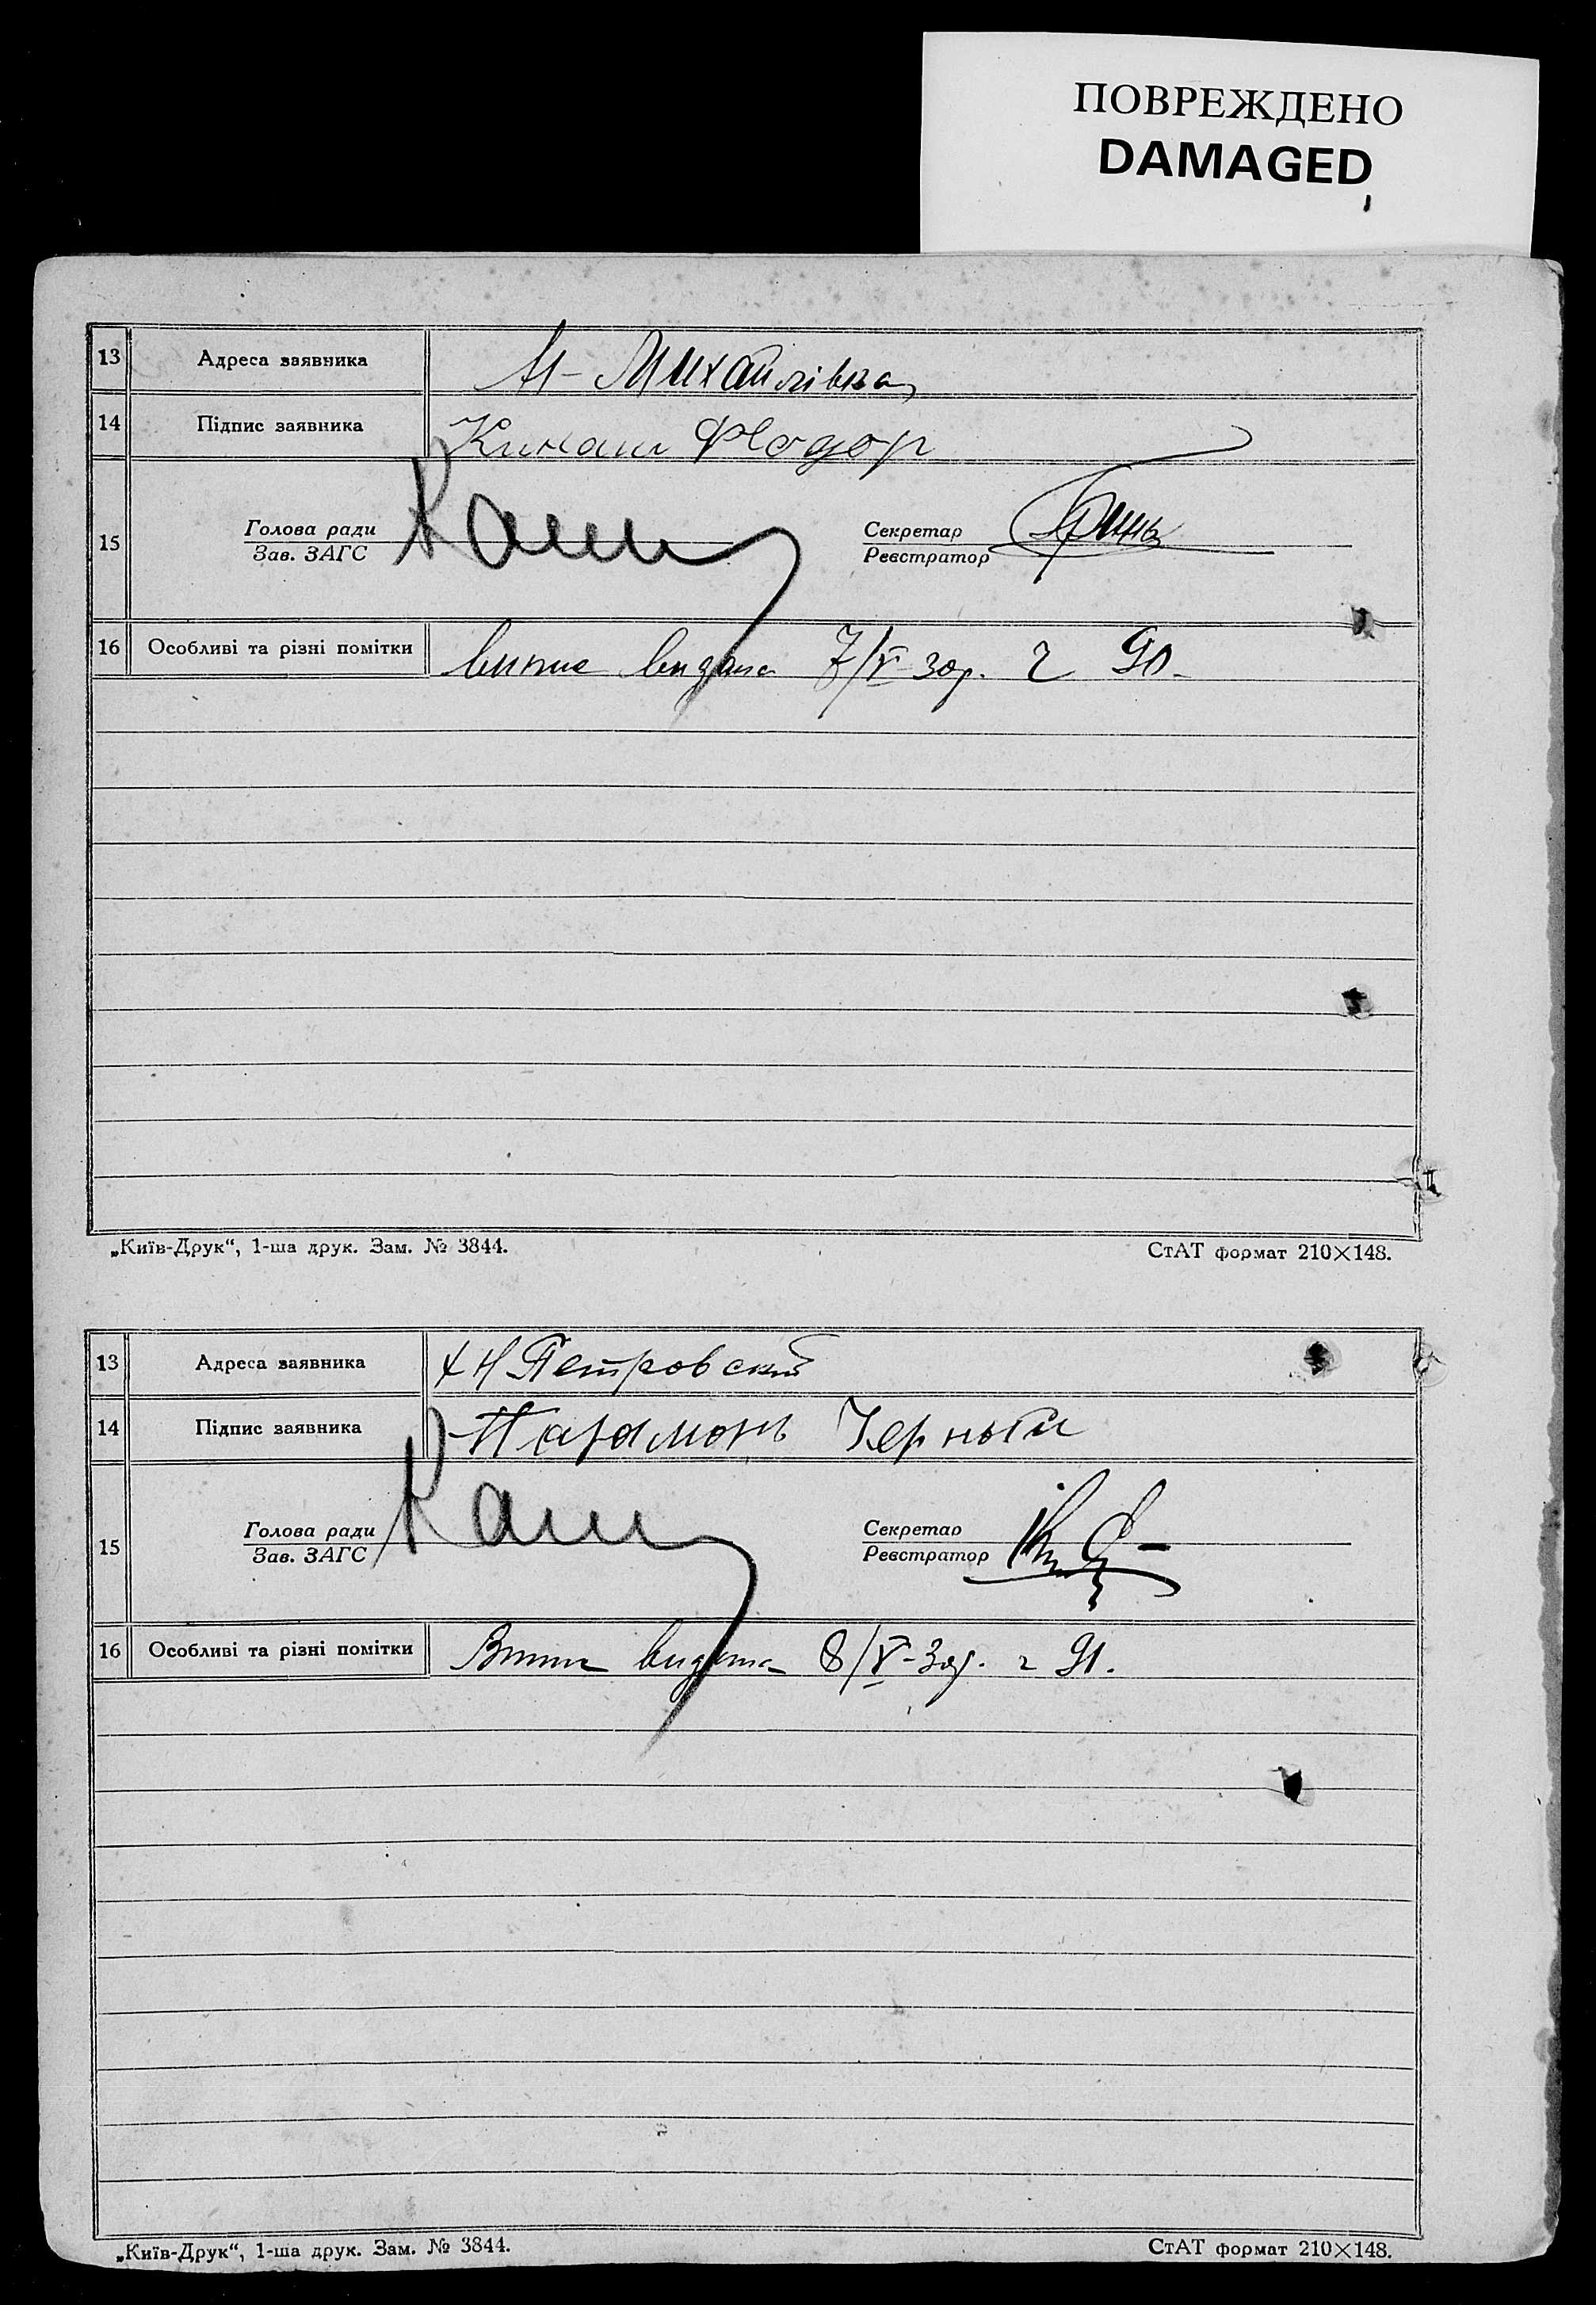 ПОВРЕЖДЕНО
DAMAGED
13 Адреса заявника Н-Михайлівка
14 Підпис заявника Кинаш Федор
15 Голова ради Секретар
Зав. ЗАГС Реєстратор
16 Особливі та різні помітки видана 7/V-30р. 90.
„Київ-Друк“, 1-ша друк. Зам. № 3844. СтАТ формат 210×148.
13 Адреса заявника х Н Петровский
14 Підпис заявника Парамонъ Черный
15 Голова ради Секретар
Зав. ЗАГС Реєстратор
16 Особливі та різні помітки видана 8/V-30р. 91.
„Київ-Друк“, 1-ша друк. Зам. № 3844. СтАТ формат 210×148.